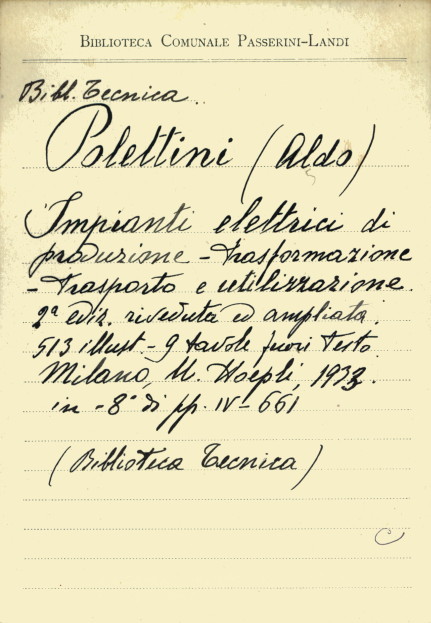 BIBLIOTECA COMUNALE PASSERINI-LANDI
Bibl. Tecnica.
Polettini (Aldo)
Impianti elettrici di
produzione - trasformazione
- trasporto e utilizzazione.
2ª ediz. riveduta ed ampliata
513 illust - 9 tavole fuori testo.
Milano, U. Hoepli, 1933.
in - 8° di pp. IV - 661
(Biblioteca Tecnica)
C